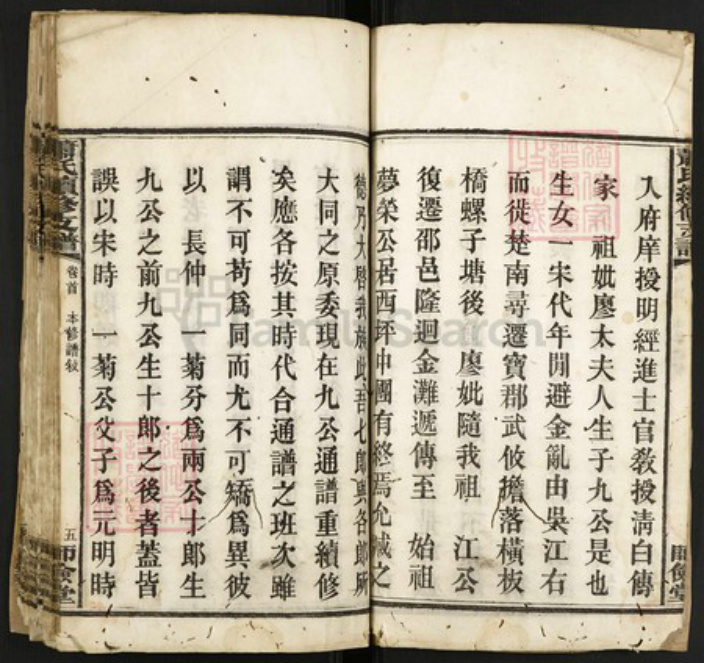 入府庠授明經進士官敎授淸白傳
家　祖妣廖太夫人生子九公是也
生女一宋代年閒避金亂由吳江右
而徙楚南尋遷寶郡武攸擔落橫板
橋螺子塘後　廖妣隨我祖　江公
復遷邵邑隆迴金灘遞傳至　始祖
夢榮公居西坪中團有終焉允臧之
德乃大啓我族此吾七郎與各郎所
大同之原委現在九公通譜重續修
矣應各按其時代合通譜之班次雖
謂不可苟爲同而尤不可矯爲異彼
以　長仲　一菊分爲兩公十郎生
九公之前九公生十郎之後者蓋皆
誤以宋時　一菊公父子爲元明時
蕭氏續修支譜
卷首　本修譜敘
五
師儉堂
蕭氏續修支譜
師儉堂
FamilySearch